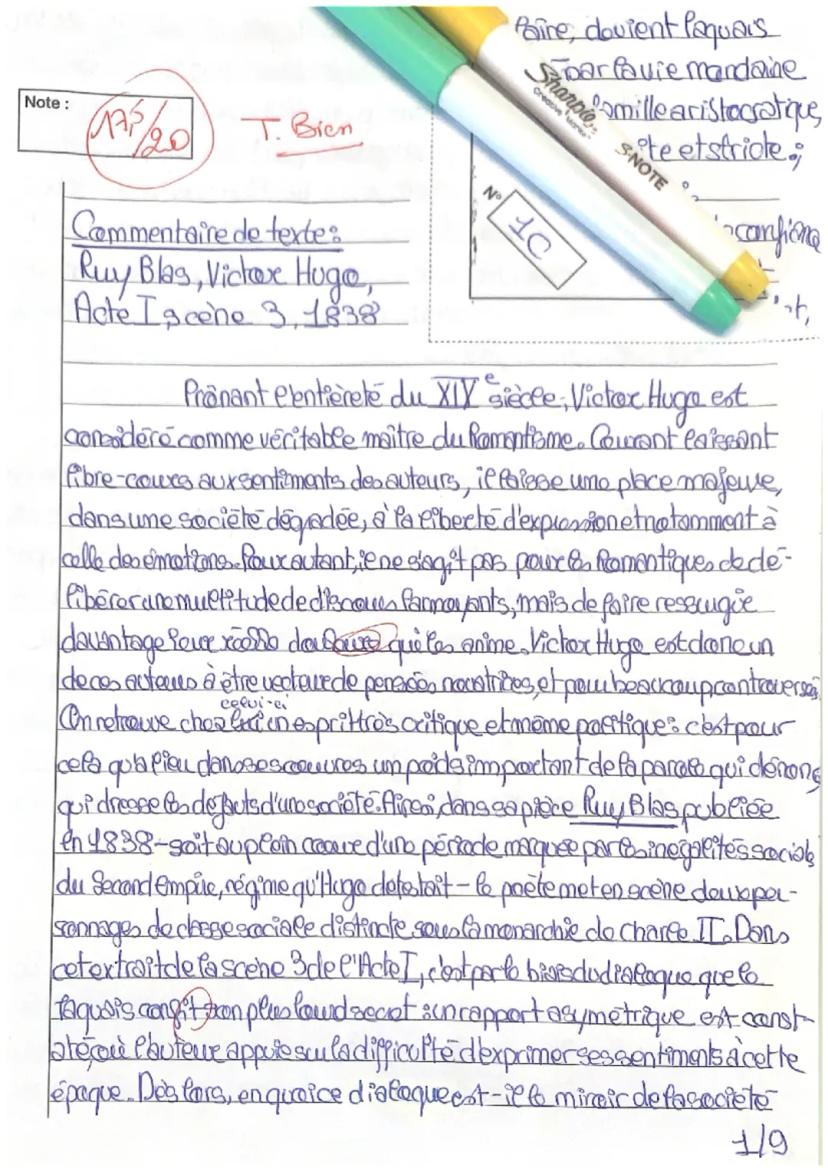 Note :
17,5/20
T. Bien
faire, devient laquais
par la vie mondaine
famille aristocratique,
et stricte ;
Sharpie
CREATIVE
S·NOTE
N°
1C
confiance
Commentaire de texte :
Ruy Blas, Victor Hugo,
Acte I, scène 3, 1838
Prônant l'entièreté du XIXe siècle, Victor Hugo est
considéré comme véritable maître du Romantisme. Courant laissant
libre-cours aux sentiments des auteurs, il laisse une place majeure,
dans une société dégradée, à la liberté d'expression et notamment à
celle des émotions. Pour autant, il ne s'agit pas pour les Romantiques de dé-
libérer une multitude de discours larmoyants, mais de faire ressurgir
davantage leur qui les anime. Victor Hugo est donc un
de ces auteurs à être vecteur de pensées novatrices, et pour beaucoup controversé
celui-ci
On retrouve chez lui un esprit très critique et même politique : c'est pour
cela qu'a lieu dans ses œuvres un poids important de la parole qui dénonce
qui dresse les défauts d'une société. Ainsi, dans sa pièce Ruy Blas publiée
en 1838 - soit au plein cœur d'une période marquée par les inégalités sociales
du Second Empire, régime qu'Hugo détestait - le poète met en scène deux per-
sonnages de classe sociale distincte sous la monarchie de Charle II. Dans
cet extrait de la scène 3 de l'Acte I, c'est par le biais du dialogue que le
laquais confit son plus lourd secret : un rapport asymétrique est const-
até, où l'auteur appuie sur la difficulté d'exprimer ses sentiments à cette
époque. Dès lors, en quoi ce dialogue est-il le miroir de la société
1/9